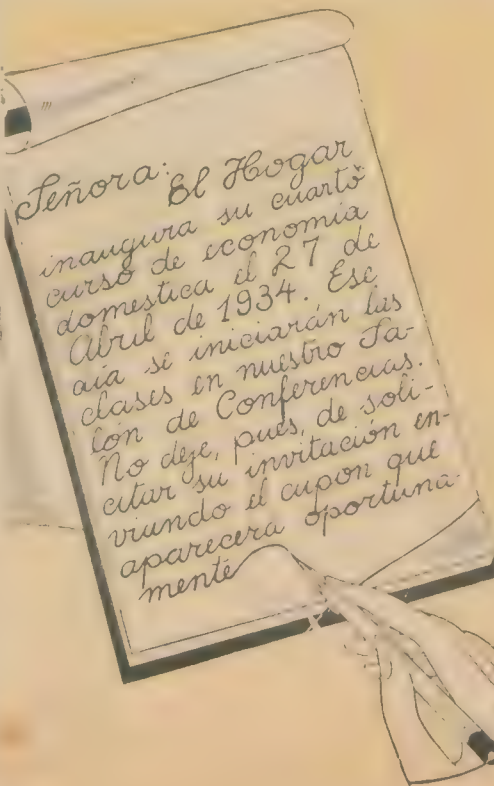 Señora:
El Hogar
inaugura su cuarto
curso de economia
domestica el 27 de
Abril de 1934. Ese
dia se iniciarán las
clases en nuestro Sa-
lón de Conferencias.
No deje, pues, de soli-
citar su invitación en-
viando el cupon que
aparecera oportuna-
mente